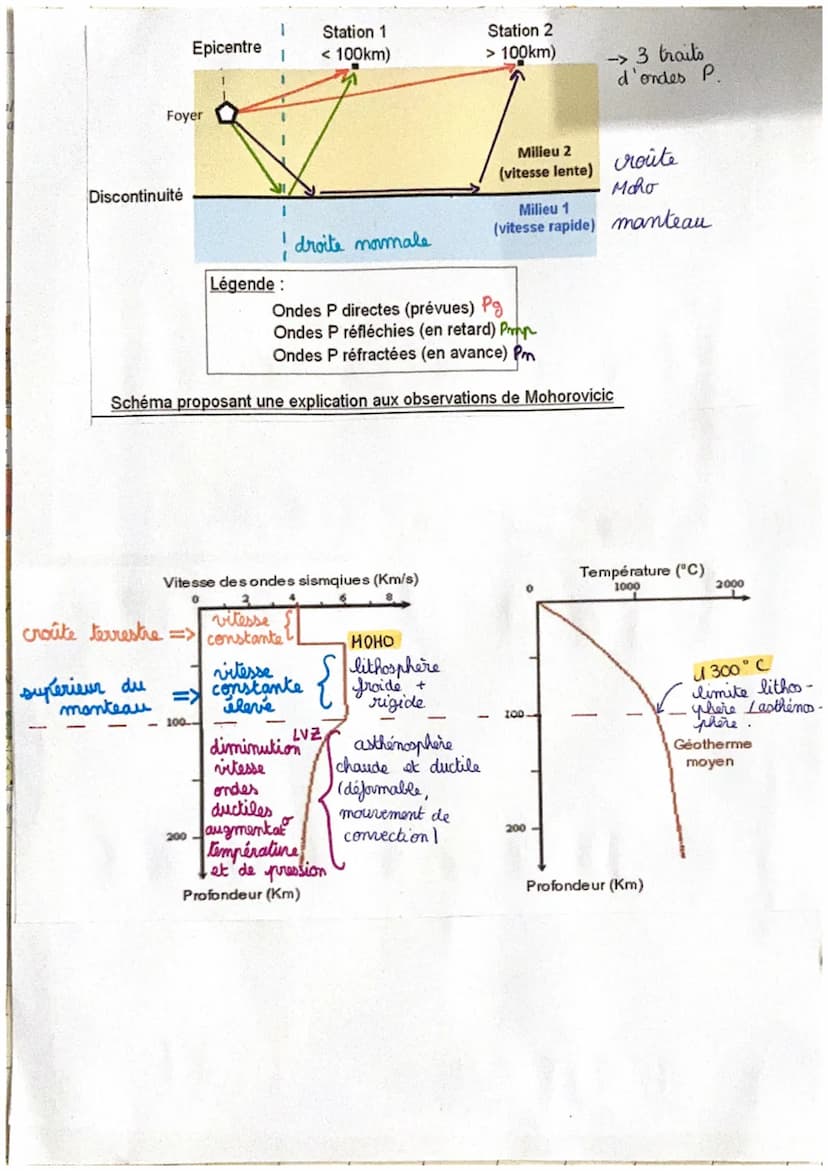 Epicentre
Station 1
< 100km)
Station 2
> 100km)
-> 3 traits
d'ondes P.
Foyer
Milieu 2
(vitesse lente)
croûte
Discontinuité
Moho
Milieu 1
(vitesse rapide)
manteau
droite normale
Légende :
Ondes P directes (prévues) Pg
Ondes P réfléchies (en retard) Pmp
Ondes P réfractées (en avance) Pn
Schéma proposant une explication aux observations de Mohorovicic
Vitesse des ondes sismqiues (Km/s)
0 2 4 6 8
croûte terrestre =>
vitesse
constante
MOHO
supérieur du
manteau =>
vitesse
constante
élevé
lithosphère
froide +
rigide
100
LVZ
diminution
vitesse
ondes
ductiles
augmentat°
température
et de pression
asthénosphère
chaude et ductile
(déformable,
mouvement de
convection)
200
Profondeur (Km)
Température (°C)
0 1000 2000
1300° C
limite lithos-
phère / asthéno-
phère.
100
Géotherme
moyen
200
Profondeur (Km)